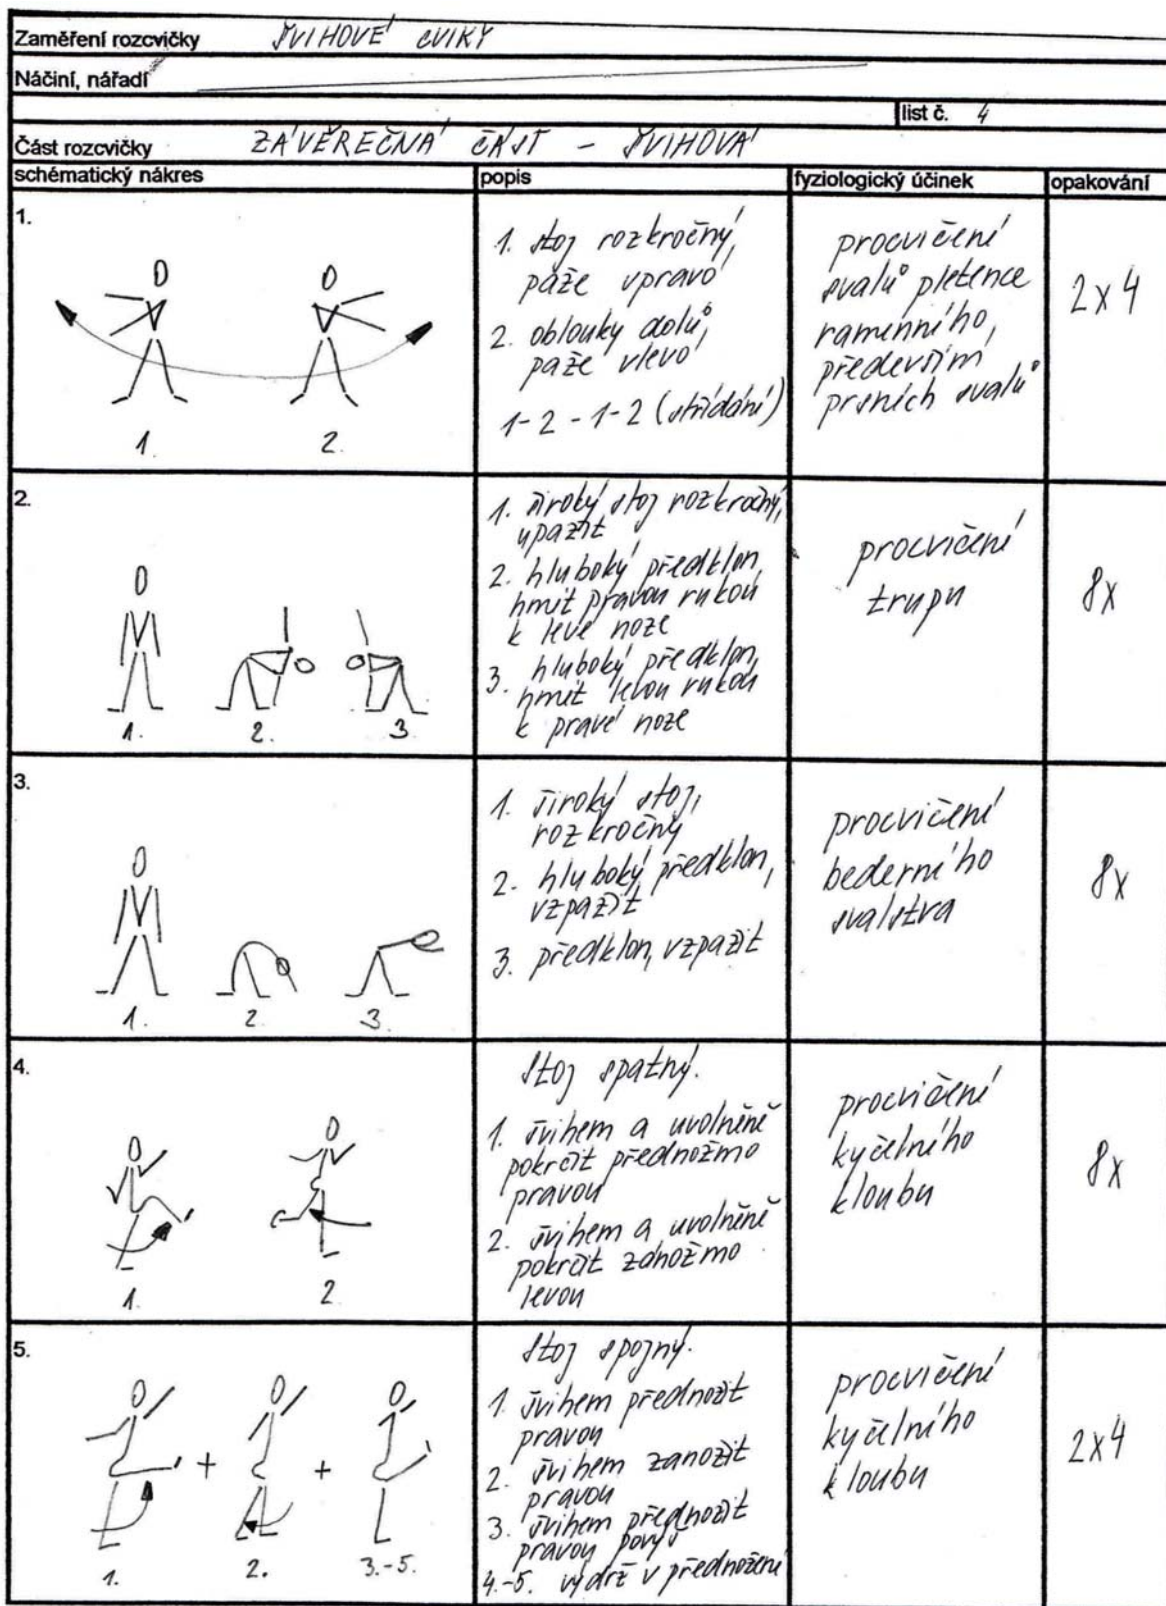 Zaměření rozcvičky ŠVIHOVÉ CVIKY
Náčiní, nářadí
list č. 4
Část rozcvičky ZÁVĚREČNÁ ČÁST - ŠVIHOVÁ
schématický nákres popis fyziologický účinek opakování
1.
1. stoj rozkročný,
paže vpravo
2. oblouky dolů,
paže vlevo
1-2 - 1-2 (střídání)
procvičení
svalů pletence
ramenního,
především
prsních svalů
2x4
1. 2.
2.
1. široký stoj rozkročný,
upažit
2. hluboký předklon,
hmit pravou rukou
k levé noze
3. hluboký předklon,
hmit levou rukou
k pravé noze
procvičení
trupu
8x
1. 2. 3.
3.
1. široký stoj,
rozkročný
2. hluboký předklon,
vzpažit
3. předklon, vzpažit
procvičení
bederního
svalstva
8x
1. 2. 3.
4.
Stoj spatný.
1. švihem a uvolněně
pokrčit přednožmo
pravou
2. švihem a uvolněně
pokrčit zánožmo
levou
procvičení
kyčelního
kloubu
8x
1. 2.
5.
Stoj spojný.
1. švihem přednožit
pravou
2. švihem zanožit
pravou
3. švihem přednožit
pravou povýš
4.-5. výdrž v přednožení
procvičení
kyčelního
kloubu
2x4
+ +
1. 2. 3.-5.